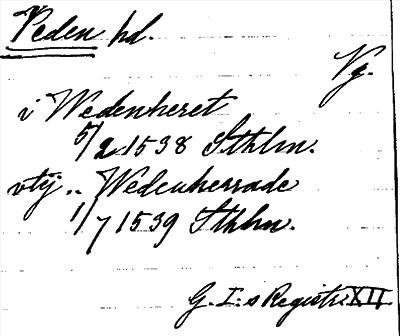 Veden hd.
Vg.
i Wedenheret
5/2 1538 Sthlm.
vtij .. Wedenherrade
1/7 1539 Sthlm.
G. I:s Registr. XII